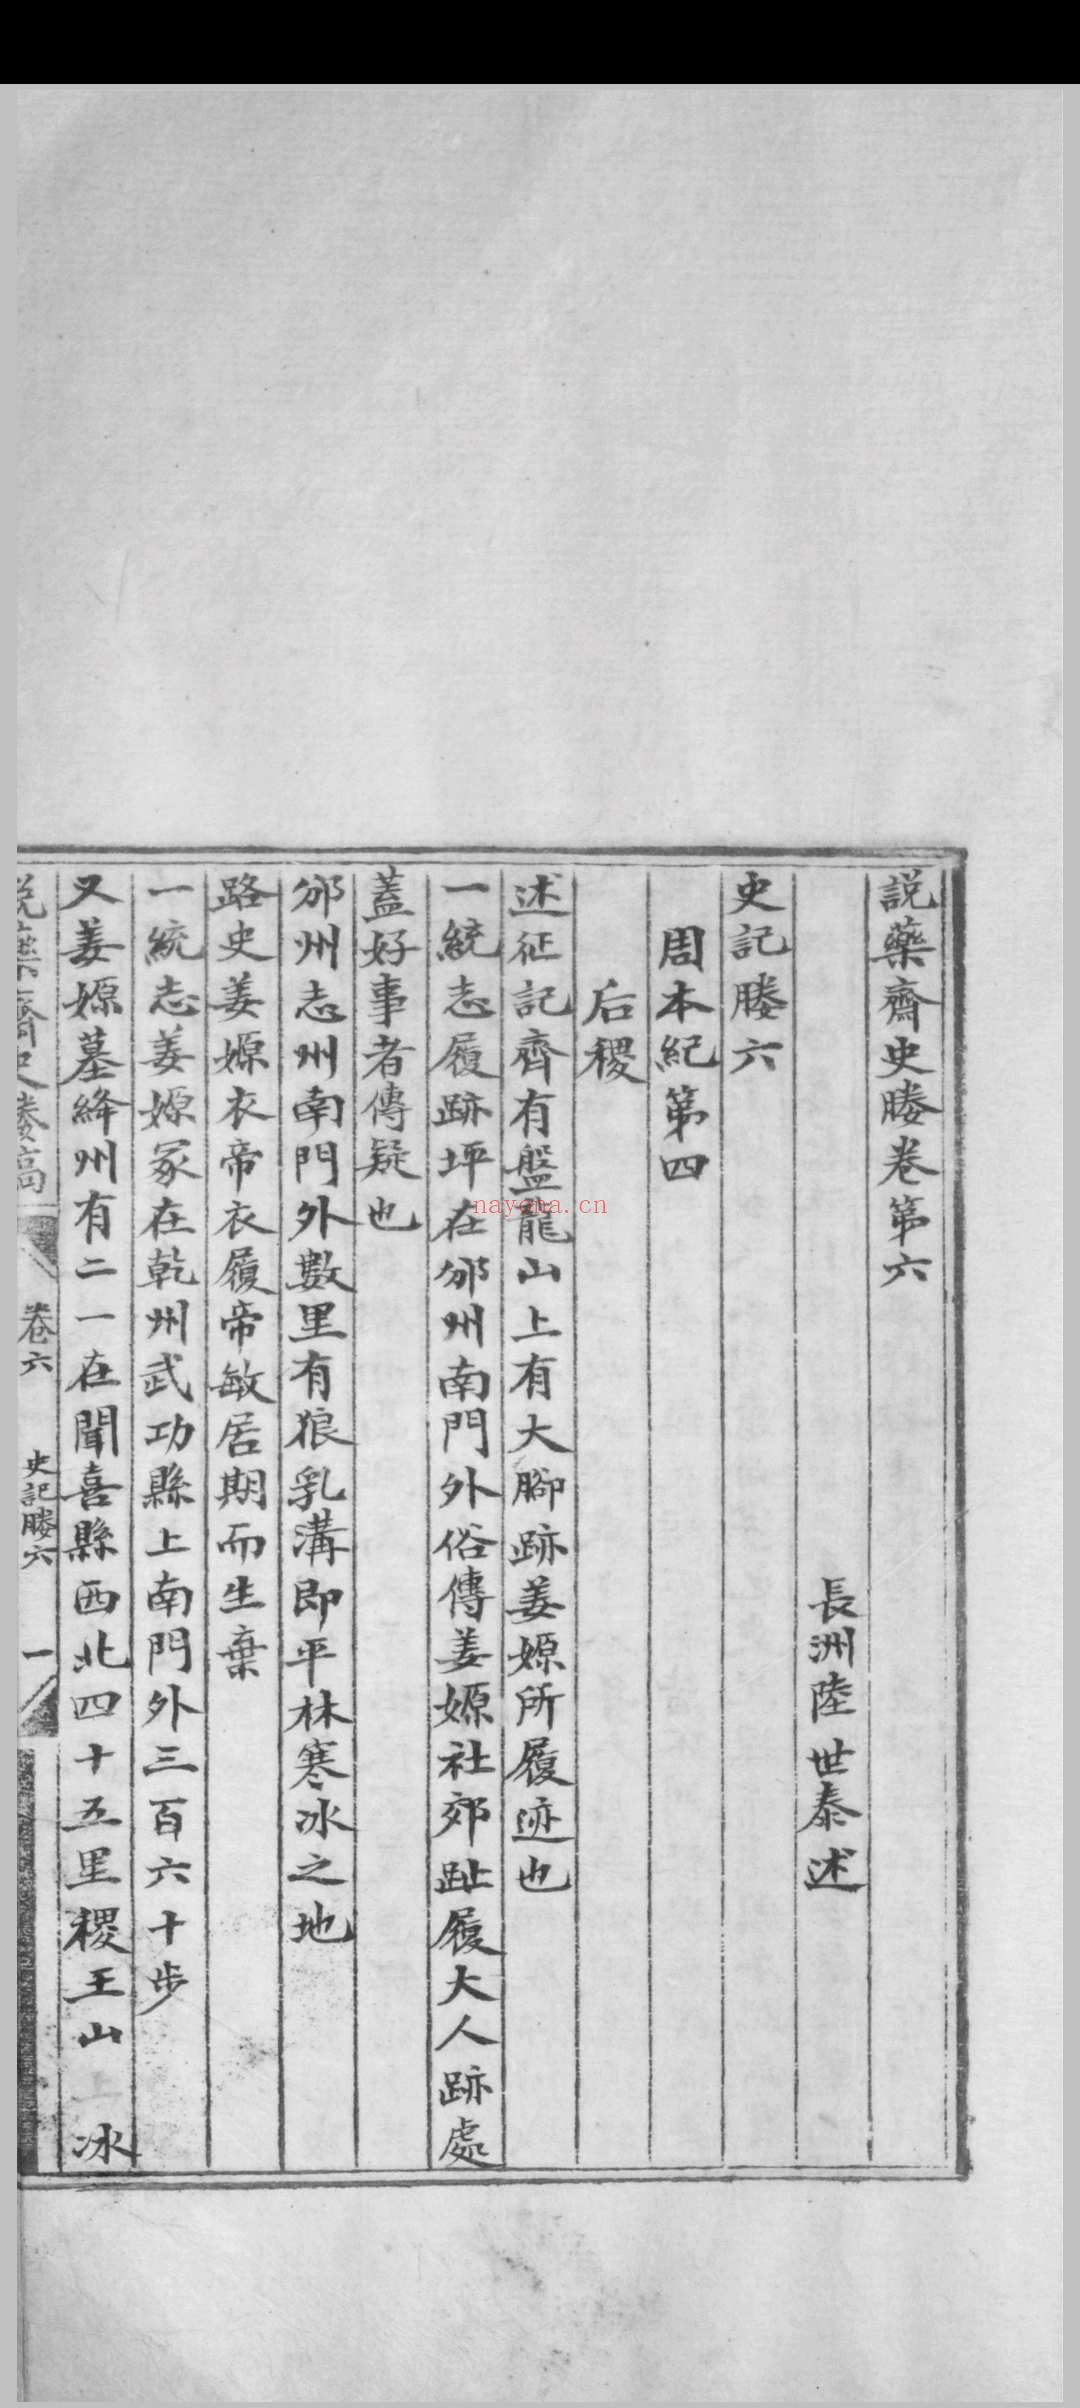 説藥齋史㬺卷第六
長洲陸世泰述
史記㬺六
周本紀第四
后稷
述征記齊有盤龍山上有大腳跡姜嫄所履迹也
一統志履跡坪在邠州南門外俗傳姜嫄社郊趾履大人跡處
蓋好事者傳疑也
邠州志州南門外數里有狼乳溝即平林寒冰之地
路史姜嫄衣帝衣履帝敏居期而生棄
一統志姜嫄冢在乾州武功縣上南門外三百六十步
又姜嫄墓絳州有二一在聞喜縣西北四十五里稷王山 冰
卷六 史記㬺六 一
nayona.cn